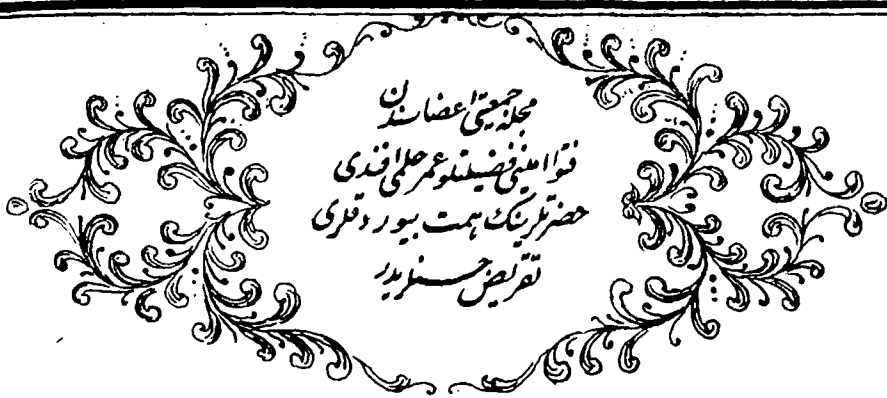 مجله جمعيتى اعضاسندن
فتوا امينى فضيلتلو عمر حلمى افندى
حضرتلرينك همت بيوردقلرى
تقريض حسنلريدر